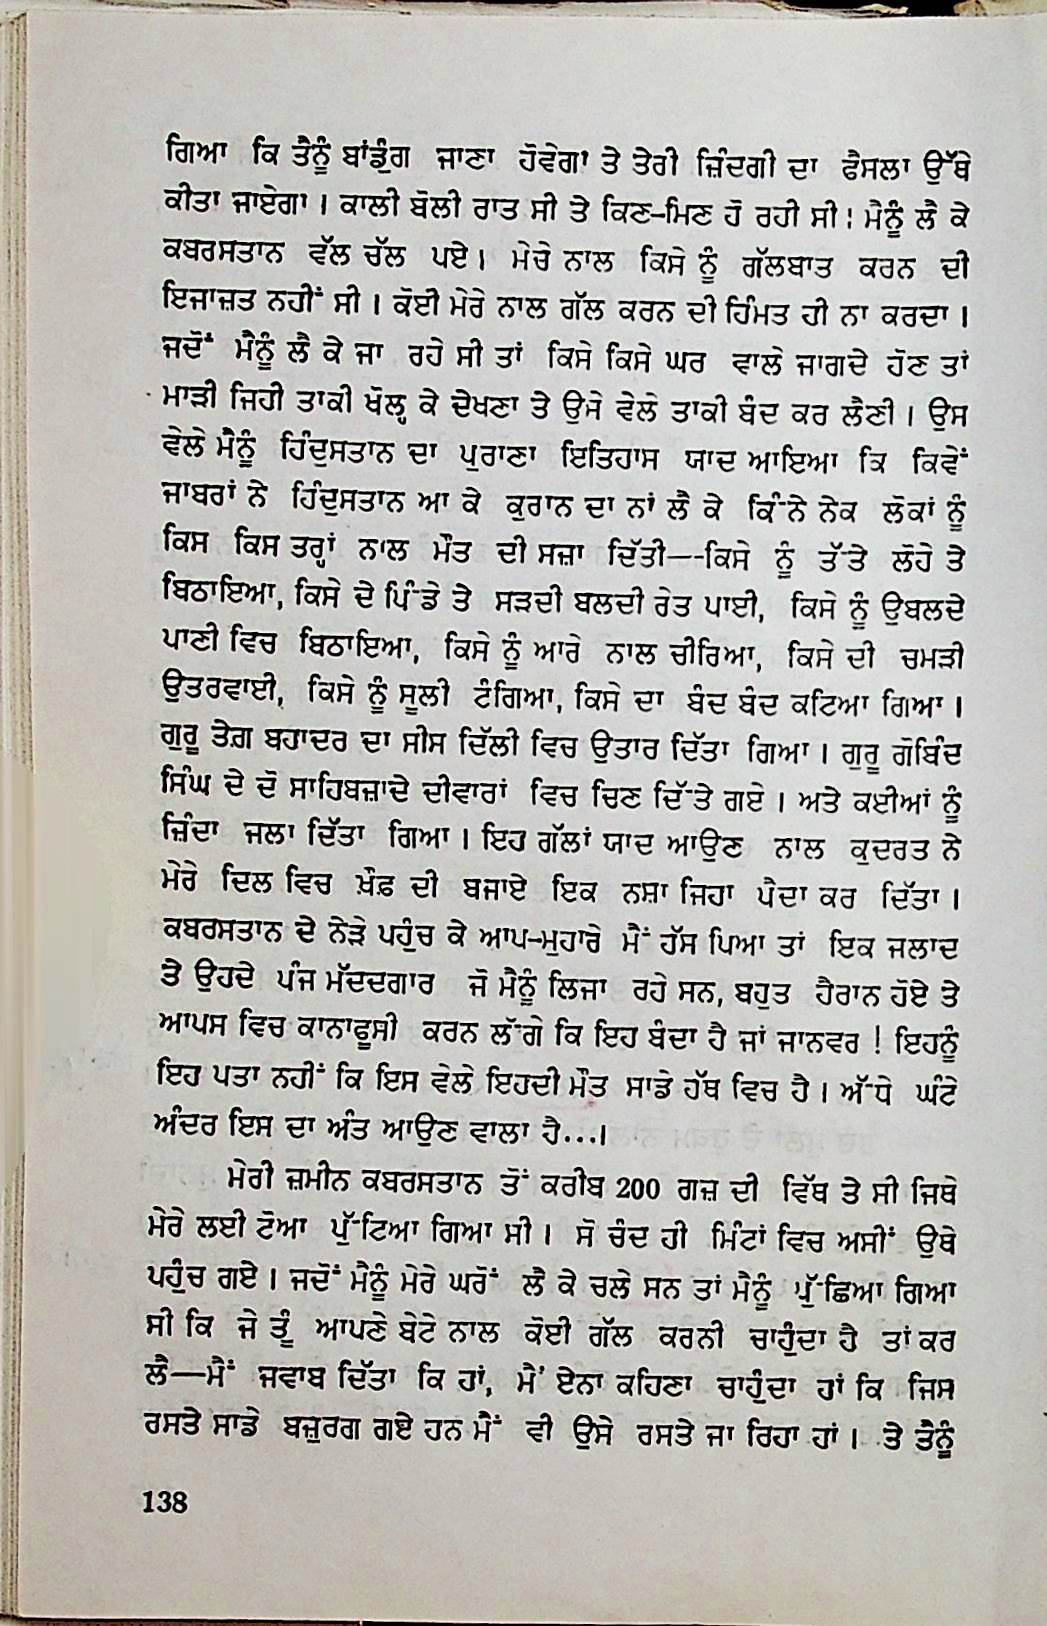 ਗਿਆ ਕਿ ਤੈਨੂੰ ਬਾਂਡੁੰਗ ਜਾਣਾ ਹੋਵੇਗਾ ਤੇ ਤੇਰੀ ਜ਼ਿੰਦਗੀ ਦਾ ਫੈਸਲਾ ਉੱਥੇ
ਕੀਤਾ ਜਾਏਗਾ । ਕਾਲੀ ਬੋਲੀ ਰਾਤ ਸੀ ਤੇ ਕਿਣ-ਮਿਣ ਹੋ ਰਹੀ ਸੀ । ਮੈਨੂੰ ਲੈ ਕੇ
ਕਬਰਸਤਾਨ ਵੱਲ ਚੱਲ ਪਏ । ਮੇਰੇ ਨਾਲ ਕਿਸੇ ਨੂੰ ਗੱਲਬਾਤ ਕਰਨ ਦੀ
ਇਜਾਜ਼ਤ ਨਹੀਂ ਸੀ । ਕੋਈ ਮੇਰੇ ਨਾਲ ਗੱਲ ਕਰਨ ਦੀ ਹਿੰਮਤ ਹੀ ਨਾ ਕਰਦਾ ।
ਜਦੋਂ ਮੈਨੂੰ ਲੈ ਕੇ ਜਾ ਰਹੇ ਸੀ ਤਾਂ ਕਿਸੇ ਕਿਸੇ ਘਰ ਵਾਲੇ ਜਾਗਦੇ ਹੋਣ ਤਾਂ
ਮਾੜੀ ਜਿਹੀ ਤਾਕੀ ਖੋਲ੍ਹ ਕੇ ਦੇਖਣਾ ਤੇ ਉਸੇ ਵੇਲੇ ਤਾਕੀ ਬੰਦ ਕਰ ਲੈਣੀ । ਉਸ
ਵੇਲੇ ਮੈਨੂੰ ਹਿੰਦੁਸਤਾਨ ਦਾ ਪੁਰਾਣਾ ਇਤਿਹਾਸ ਯਾਦ ਆਇਆ ਕਿ ਕਿਵੇਂ
ਜਾਬਰਾਂ ਨੇ ਹਿੰਦੁਸਤਾਨ ਆ ਕੇ ਕੁਰਾਨ ਦਾ ਨਾਂ ਲੈ ਕੇ ਕਿੰਨੇ ਨੇਕ ਲੋਕਾਂ ਨੂੰ
ਕਿਸ ਕਿਸ ਤਰ੍ਹਾਂ ਨਾਲ ਮੌਤ ਦੀ ਸਜ਼ਾ ਦਿੱਤੀ—ਕਿਸੇ ਨੂੰ ਤੱਤੇ ਲੋਹੇ ਤੇ
ਬਿਠਾਇਆ, ਕਿਸੇ ਦੇ ਪਿੰਡੇ ਤੇ ਸੜਦੀ ਬਲਦੀ ਰੇਤ ਪਾਈ, ਕਿਸੇ ਨੂੰ ਉਬਲਦੇ
ਪਾਣੀ ਵਿਚ ਬਿਠਾਇਆ, ਕਿਸੇ ਨੂੰ ਆਰੇ ਨਾਲ ਚੀਰਿਆ, ਕਿਸੇ ਦੀ ਚਮੜੀ
ਉਤਰਵਾਈ, ਕਿਸੇ ਨੂੰ ਸੂਲੀ ਟੰਗਿਆ, ਕਿਸੇ ਦਾ ਬੰਦ ਬੰਦ ਕਟਿਆ ਗਿਆ ।
ਗੁਰੂ ਤੇਗ਼ ਬਹਾਦਰ ਦਾ ਸੀਸ ਦਿੱਲੀ ਵਿਚ ਉਤਾਰ ਦਿੱਤਾ ਗਿਆ । ਗੁਰੂ ਗੋਬਿੰਦ
ਸਿੰਘ ਦੇ ਦੋ ਸਾਹਿਬਜ਼ਾਦੇ ਦੀਵਾਰਾਂ ਵਿਚ ਚਿਣ ਦਿੱਤੇ ਗਏ । ਅਤੇ ਕਈਆਂ ਨੂੰ
ਜ਼ਿੰਦਾ ਜਲਾ ਦਿੱਤਾ ਗਿਆ । ਇਹ ਗੱਲਾਂ ਯਾਦ ਆਉਣ ਨਾਲ ਕੁਦਰਤ ਨੇ
ਮੇਰੇ ਦਿਲ ਵਿਚ ਖ਼ੌਫ਼ ਦੀ ਬਜਾਏ ਇਕ ਨਸ਼ਾ ਜਿਹਾ ਪੈਦਾ ਕਰ ਦਿੱਤਾ ।
ਕਬਰਸਤਾਨ ਦੇ ਨੇੜੇ ਪਹੁੰਚ ਕੇ ਆਪ-ਮੁਹਾਰੇ ਮੈਂ ਹੱਸ ਪਿਆ ਤਾਂ ਇਕ ਜਲਾਦ
ਤੇ ਉਹਦੇ ਪੰਜ ਮੱਦਦਗਾਰ ਜੋ ਮੈਨੂੰ ਲਿਜਾ ਰਹੇ ਸਨ, ਬਹੁਤ ਹੈਰਾਨ ਹੋਏ ਤੇ
ਆਪਸ ਵਿਚ ਕਾਨਾਫੂਸੀ ਕਰਨ ਲੱਗੇ ਕਿ ਇਹ ਬੰਦਾ ਹੈ ਜਾਂ ਜਾਨਵਰ ! ਇਹਨੂੰ
ਇਹ ਪਤਾ ਨਹੀਂ ਕਿ ਇਸ ਵੇਲੇ ਇਹਦੀ ਮੌਤ ਸਾਡੇ ਹੱਥ ਵਿਚ ਹੈ । ਅੱਧੇ ਘੰਟੇ
ਅੰਦਰ ਇਸ ਦਾ ਅੰਤ ਆਉਣ ਵਾਲਾ ਹੈ...।
ਮੇਰੀ ਜ਼ਮੀਨ ਕਬਰਸਤਾਨ ਤੋਂ ਕਰੀਬ 200 ਗਜ਼ ਦੀ ਵਿੱਥ ਤੇ ਸੀ ਜਿਥੇ
ਮੇਰੇ ਲਈ ਟੋਆ ਪੁੱਟਿਆ ਗਿਆ ਸੀ । ਸੋ ਚੰਦ ਹੀ ਮਿੰਟਾਂ ਵਿਚ ਅਸੀਂ ਉਥੇ
ਪਹੁੰਚ ਗਏ । ਜਦੋਂ ਮੈਨੂੰ ਮੇਰੇ ਘਰੋਂ ਲੈ ਕੇ ਚਲੇ ਸਨ ਤਾਂ ਮੈਨੂੰ ਪੁੱਛਿਆ ਗਿਆ
ਸੀ ਕਿ ਜੇ ਤੂੰ ਆਪਣੇ ਬੇਟੇ ਨਾਲ ਕੋਈ ਗੱਲ ਕਰਨੀ ਚਾਹੁੰਦਾ ਹੈ ਤਾਂ ਕਰ
ਲੈ—ਮੈਂ ਜਵਾਬ ਦਿੱਤਾ ਕਿ ਹਾਂ, ਮੈਂ ਏਨਾ ਕਹਿਣਾ ਚਾਹੁੰਦਾ ਹਾਂ ਕਿ ਜਿਸ
ਰਸਤੇ ਸਾਡੇ ਬਜ਼ੁਰਗ ਗਏ ਹਨ ਮੈਂ ਵੀ ਉਸੇ ਰਸਤੇ ਜਾ ਰਿਹਾ ਹਾਂ । ਤੇ ਤੈਨੂੰ
138